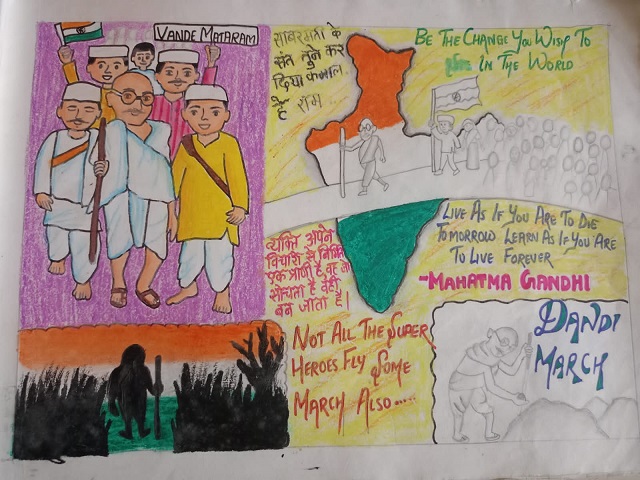 VANDE MATARAM
साबरमती के
संत तूने कर
दिया कमाल
हे राम
BE THE CHANGE YOU WISH TO
IN THE WORLD
LIVE AS IF YOU ARE TO DIE
TOMORROW LEARN AS IF YOU ARE
TO LIVE FOREVER
-MAHATMA GANDHI
व्यक्ति अपने
विचारों से निर्मित
एक प्राणी है, वह जो
सोचता है वही
बन जाता है।
NOT ALL THE SUPER
HEROES FLY SOME
MARCH ALSO....
DANDI
MARCH